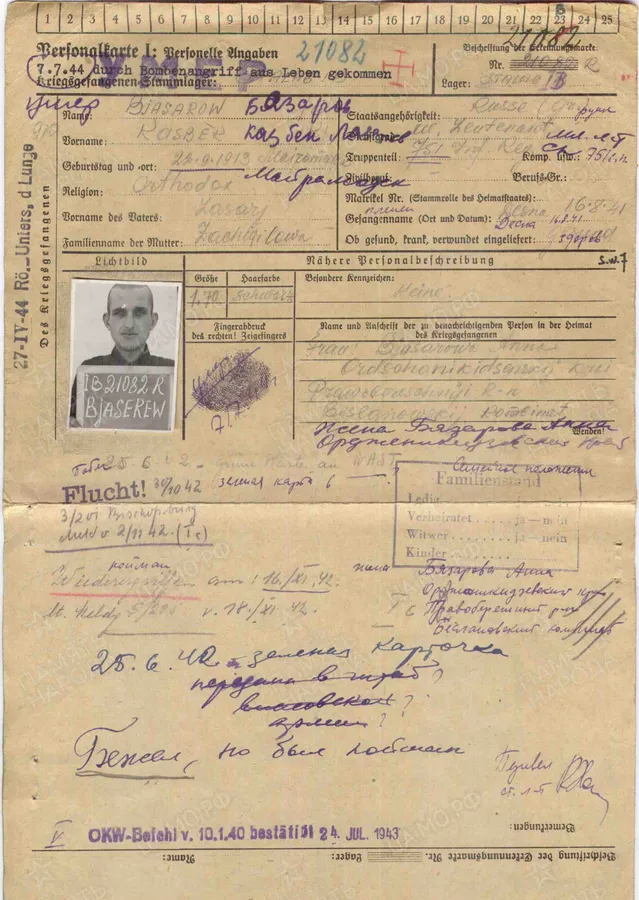 1 2 3 4 5 6 7 8 9 10 11 12 13 14 15 16 17 18 19 20 21 22 23 24 25
8
Personalkarte I: Personelle Angaben
21082
21082
Beschriftung der Erkennungsmarke
7.7.44 durch Bombenangriff aus Leben gekommen
УМЕР
Nr. 21082 R
Kriegsgefangenen-Stammlager:
Lager: Stalag IB
умер
Name: BJASAROW Бязаров
Staatsangehörigkeit: Russe
Vorname: KASBEK Казбек
Dienstgrad: Leutenant мл. л-т
Truppenteil: 751 Inf. Reg. Komp. usw.: 75/с.п.
Geburtstag und -ort: 22.9.1913
Zivilberuf: Berufs-Gr.:
Religion: Orthodox
Matrikel Nr. (Stammrolle des Heimatstaates):
Vorname des Vaters: Lasarj
Gefangennahme (Ort und Datum): Desna 16.8.41
плен Десна 16.8.41
Familienname der Mutter:
Ob gesund, krank, verwundet eingeliefert: Gesund
здоров
27-IV-44 Rö.-Unters. d Lunge
Des Kriegsgefangenen
Lichtbild
Nähere Personalbeschreibung
s.w.7
Größe
Haarfarbe
Besondere Kennzeichen:
1,70
schwarz
Keine
IB 21082 R
BJASEREW
Fingerabdruck
des rechten! Zeigefingers
Name und Anschrift der zu benachrichtigenden Person in der Heimat
des Kriegsgefangenen
умер
7/7.44г.
Frau: Bjasarowa Anna
Ordschonikidsenskij
Prawobereschnij R-n
Beslanowskij Kombinat
Жена Бязарова Анна
Wenden!
Орджоникидзевский край
25.6.42 - grüne Karte an WAST
Flucht! 30/10 42
зеленая карта в
Семейное положение
3/201 Bischofsburg
Meld v 2/11 42. (Ic)
Familienstand
Ledig
Verheiratet ..... ja — nein
Witwer ..... ja — nein
Kinder
пойман
Wiederergriffen am: 16./XI. 42.
жена Бязарова Анна
Орджоникидзевский кр.
lt. Meldg 5/206 v. 18./XI. 42.
Правобережный р-н
Беслановский комбинат
25.6.42 - зеленая карточка
передана в штаб?
власовской?
армии?
Бежал, но был пойман
Перевел
ст. л-т
Bemerkungen:
V OKW-Befehl v. 10.1.40 bestätigt 24. JUL. 1943
Beschriftung der Erkennungsmarke Nr. Lager: Name: